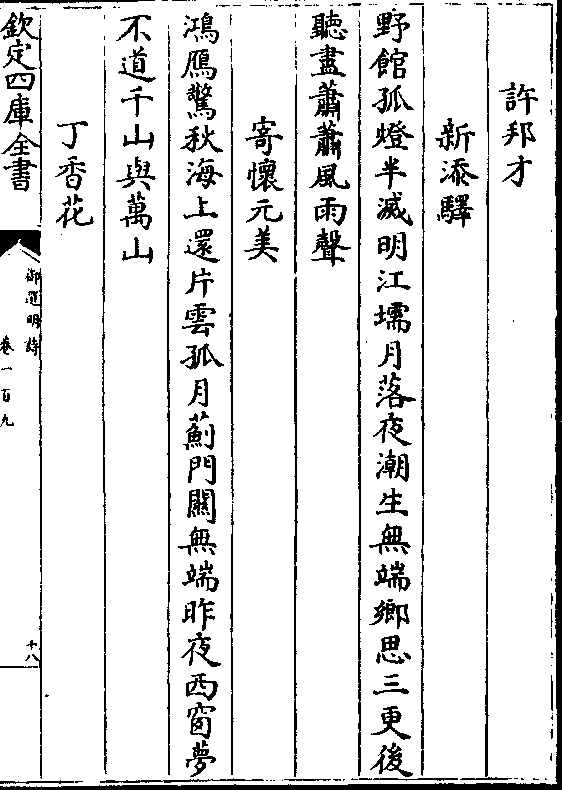 許邦才
新添驛
野館孤燈半滅明江壖月落夜潮生無端鄉思三更後
聽盡蕭蕭風雨聲
寄懷元美
鴻鴈驚秋海上還片雲孤月薊門關無端昨夜西窗夢
不道千山與萬山
丁香花
欽定四庫全書
御選明詩
卷一百九
十八